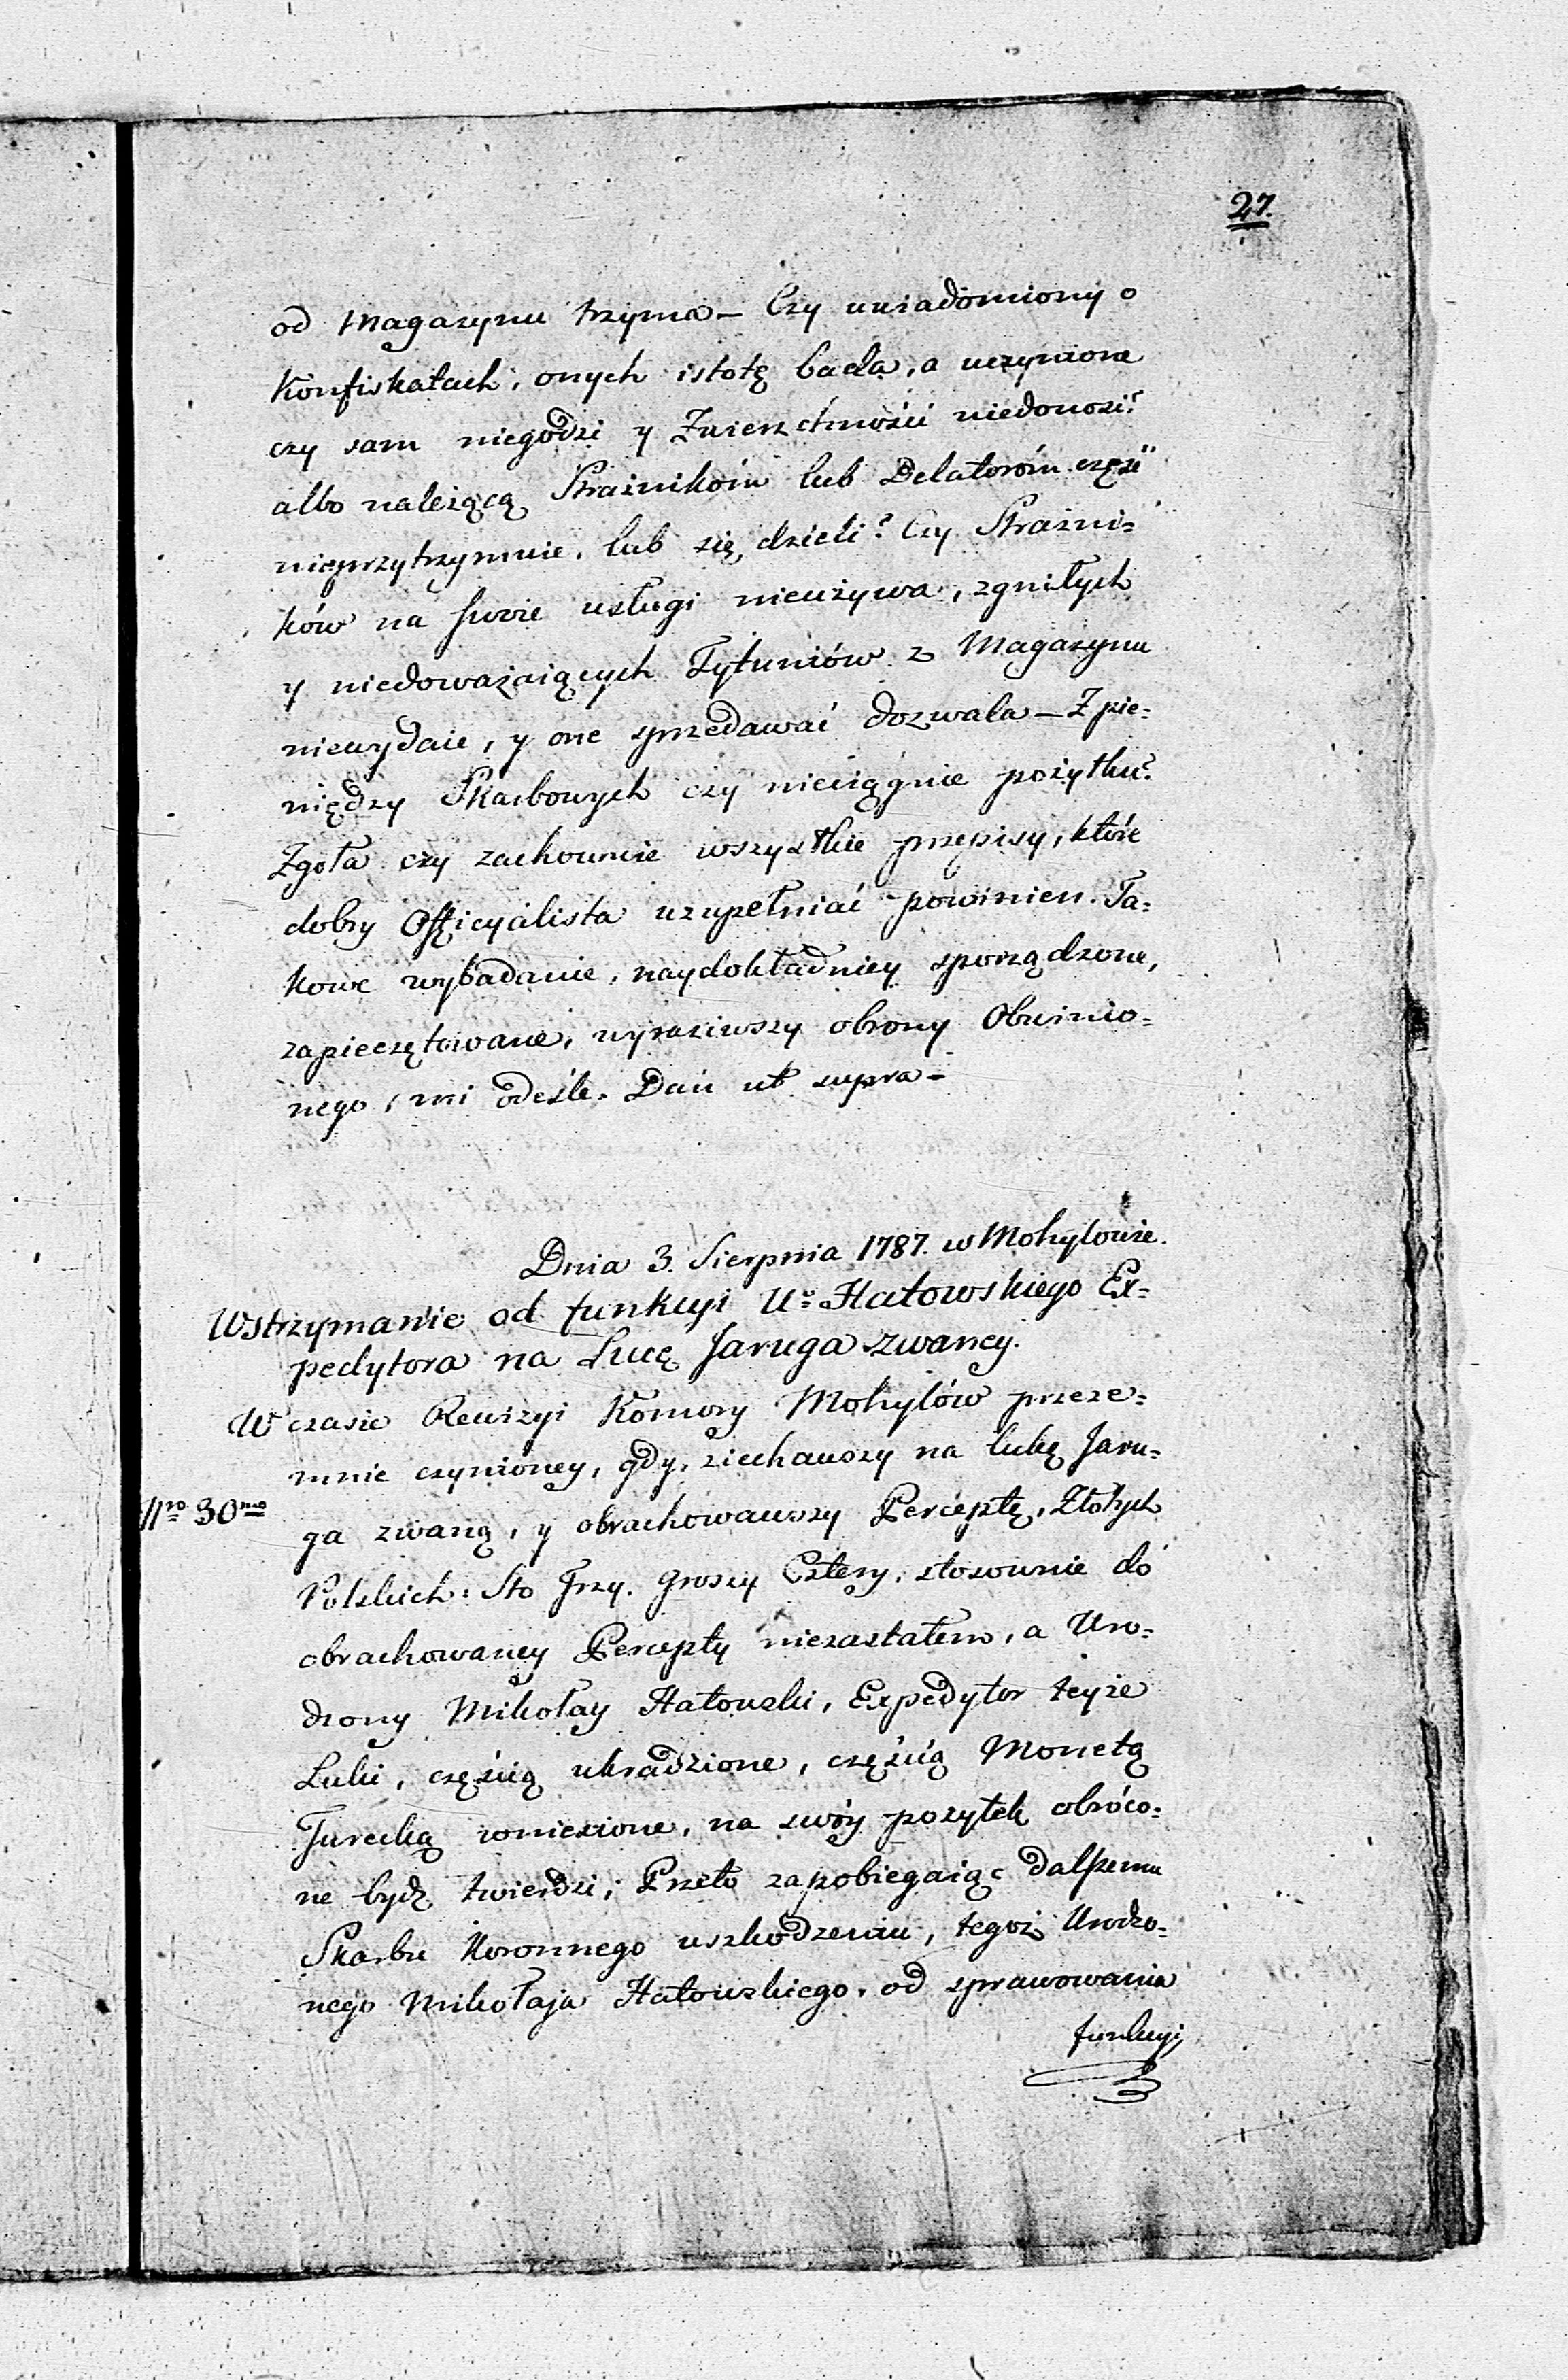 27.
od Magazynu trzyma – Czy uwiadomiony o
Konfiskatach, onych istotę bada, a uczynione
czy sam niegodzi y Zwierzchności niedonosi?
albo należącą Strażników lub Delatorów część
nieprzytrzymuie, lub się dzieli? Czy Strażni=
ków na swoie usługi nieużywa, zgniłych
y niedoważaiących Tytuniów z Magazynu
niewydaie, y one sprzedawać dozwala – Z pie=
niędzy Skarbowych czy nieciągnie pożytku?
Zgoła czy zachowuie wszystkie przepisy, które
dobry Officyalista uzupełniać powinien. Ta=
kowe wybadanie, naydokładniey sporządzone,
zapieczętowane, wyraziwszy obrony Obwinio=
nego, mi odeśle. Dan ut supra –
Dnia 3. Sierpnia 1787. w Mohylowie.
Wstrzymanie od funkcyi Uo Hatowskiego Ex=
pedytora na Lucę Jaruga zwaney.
W czasie Rewizyi Komory Mohylów przeze=
mnie czynioney, gdy, ziechawszy na lukę Jaru=
Nro 30mo
ga zwaną, y obrachowawszy Perceptę, Złotych
Polskich: Sto Trzy. groszy Cztery, stosownie do
obrachowaney Percepty niezastałem, a Uro=
dzony Mikołay Hatowski, Expedytor teyże
Luki, częścią ukradzione, częścią Monetą
Turecką wniesione, na swóy pożytek obróco=
ne bydź twierdzi; Przeto zapobiegaiąc dalszemu
Skarbu Koronnego uszkodzeniu, tegoż Urodzo=
nego Mikołaja Hatowskiego, od sprawowania
funkcyi